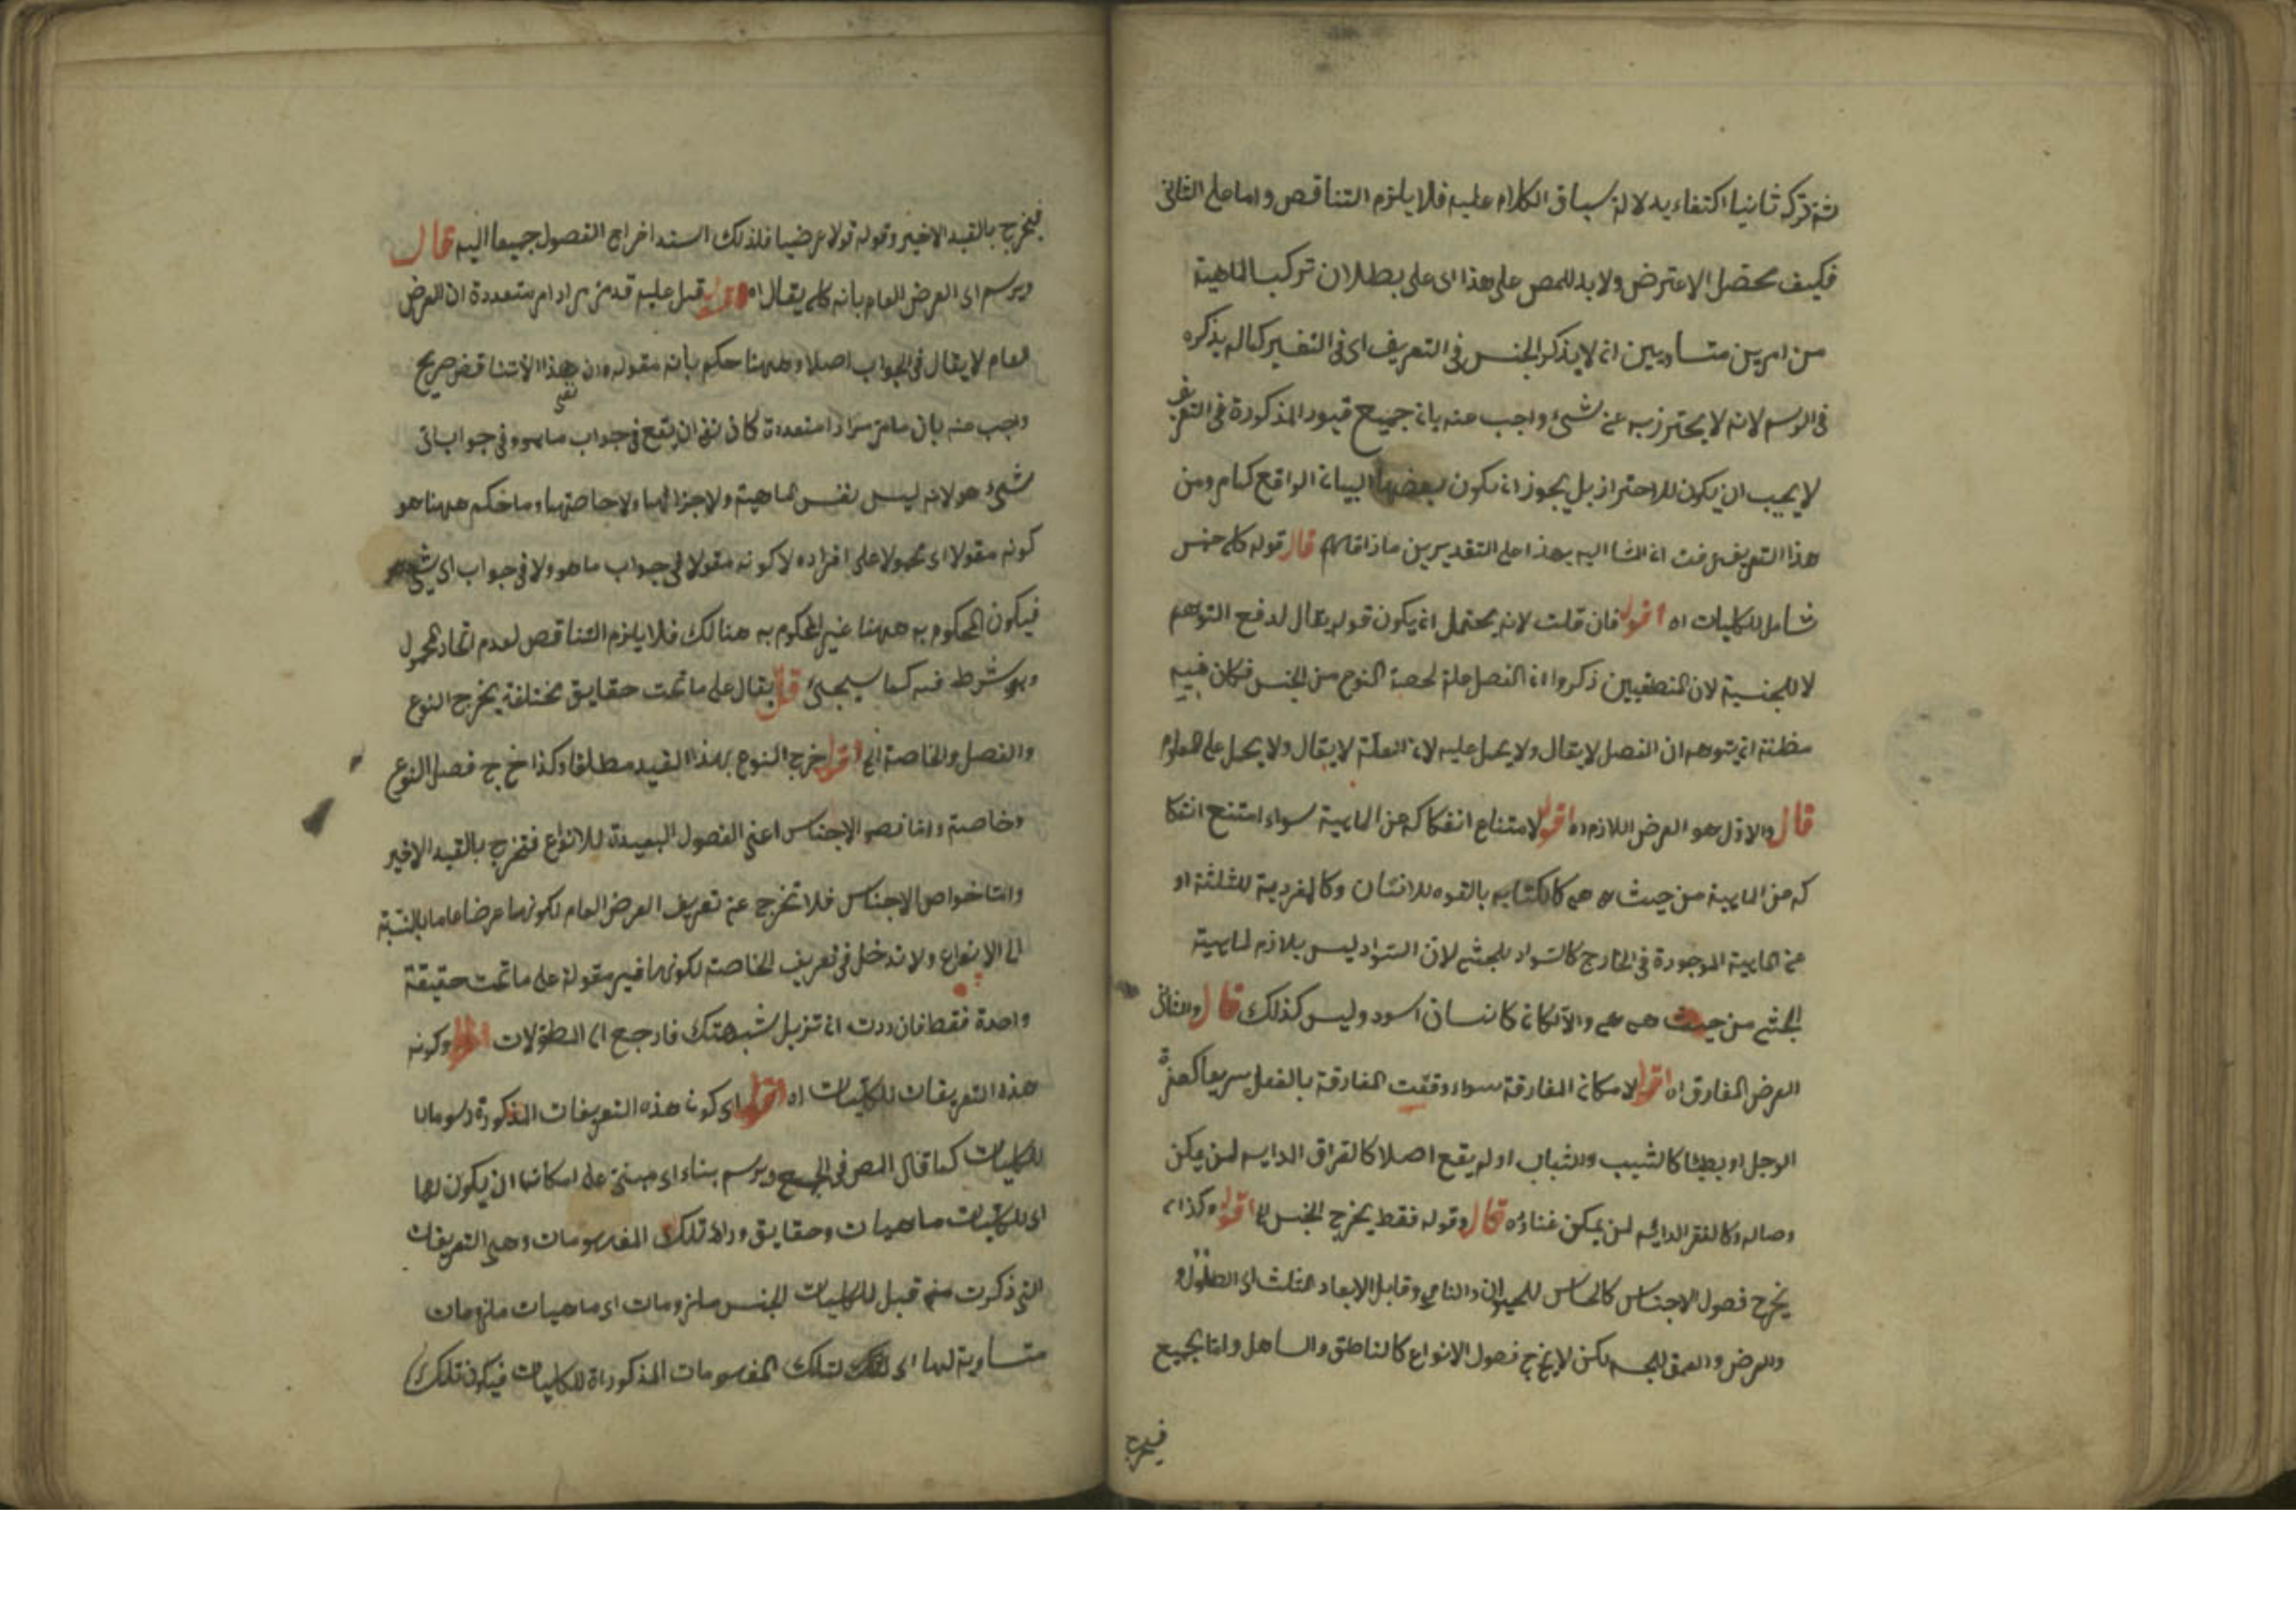 ثم تركه ثانيا اكتفاء بدلالة سياق الكلام عليه فلا يلزم التناقص واما على الثاني
فكيف محصل الاعترض ولابد للمص على هذا اى على بطلان تركب الماهية
من امرين متساويين ان لا يذكر الجنس فى التعريف اى فى التفسير كماله يذكره
فى الرسم لانه لا يحترز به عن شئ واجب عنه بان جميع قيود المذكورة فى التعريف
لا يجب ان يكون للاحتراز بل يجوز ان يكون بعضها لبيان الواقع كمام ومن
هذا التعريف عرفت ان الشا اليه بهذا على التقديرين ماذا قال قوله كلى جنس
شامل للكليات اه اقول فان قلت لانه يحتمل ان يكون قوله يقال لدفع التوهم
لا للجنسية لان المنطقيين ذكروا ان الفصل علة لحصة النوع من الجنس فكان فيه
مظنة ان يتوهم ان الفصل لا يقال ولا يحمل عليه لان العلة لا يقال ولا يحمل على المعلوم
قال والاول هو العرض اللازم اه اقول لامتناع انفكاكه عن الماهية سواء امتنع انفكا
كه عن الماهية من حيث هى هى كالكتابه بالقوه للانسان وكالفردية للثلثة او
عن الماهية الموجودة فى الخارج كالسواد للحبشى لان السواد ليس بلازم لماهية
الحبشى من حيث هى هى والا لكان كل انسان اسود وليس كذلك قال والثانى
العرض المفارق اه اقول لامكان المفارقة سواء وقعت المفارقة بالفعل سريعا كحمرة
الوجل او بطيئا كالشيب والشباب او لم يقع اصلا كالفراق الدايم لمن يمكن
وصاله وكالفقر الدايم لمن يمكن غناؤه قال وقوله فقط يخرج الجنس اه اقول وكذا
يخرج فصول الاجناس كالحساس للحيوان والنامى وقابل الابعاد الثلث اى الطول و
والعرض والعمق للجسم لكن لا يخرج فصول الانواع كالناطق والساهل واما بجميع
فيخرج
فيخرج بالقيد الاخير وقوله قولا عرضيا فلذلك اسند اخراج الفصول جميعا اليه قال
ويرسم اى العرض العام بانه كلى يقال اه اقول قبل عليه قد مر مرارا متعددة ان العرض
العام لا يقال فى الجواب اصلا وههنا حكم بانه مقول هذا الا تناقض صريح
واجب عنه بان ما مر مرارا متعددة كان نفى ان يقع فى جواب ما هو وفى جواب اى
شئ هو لانه ليس نفس الماهية ولا جزا لها ولا خاصتها وما حكم ههنا هو
كونه مقولا اى محمولا على افراده لا كونه مقولا فى جواب ما هو ولا فى جواب اى شئ هو
فيكون المحكوم به ههنا غير المحكوم به هنالك فلا يلزم التناقص لعدم اتحاد المحمول
وهو شرط فيه كما سيجئ قال يقال على ما تحت حقايق مختلفة يخرج النوع
والفصل والخاصة الخ اقول خرج النوع بهذا القيد مطلقا وكذا خرج فصل النوع
وخاصة واما فصول الاجناس اعنى الفصول البعيدة للانواع فتخرج بالقيد الاخير
واما خواص الاجناس فلا تخرج عن تعريف العرض العام لكونها عرضا عاما بالنسبة
الى الانواع ولا تدخل فى تعريف الخاصة لكونها غير مقولة على ما تحت حقيقة
واحدة فقط فان ردت ان تزيل شبهتك فارجع الى المطولات وكونه
هذه التعريفات للكليات اه اقول اى كون هذه التعريفات المذكورة رسوما
للكليات كما قال المص فى الجميع ويرسم بناء اى مبنى على امكان ان يكون لها
اى للكليات ماهيات وحقايق وراء تلك المفهومات وهى التعريفات
التى ذكرت من قبل للكليات الخمس ملزومات اى ماهيات ملزومات
متساوية لها اى لتلك المفهومات المذكوراة للكليات فيكون تلك